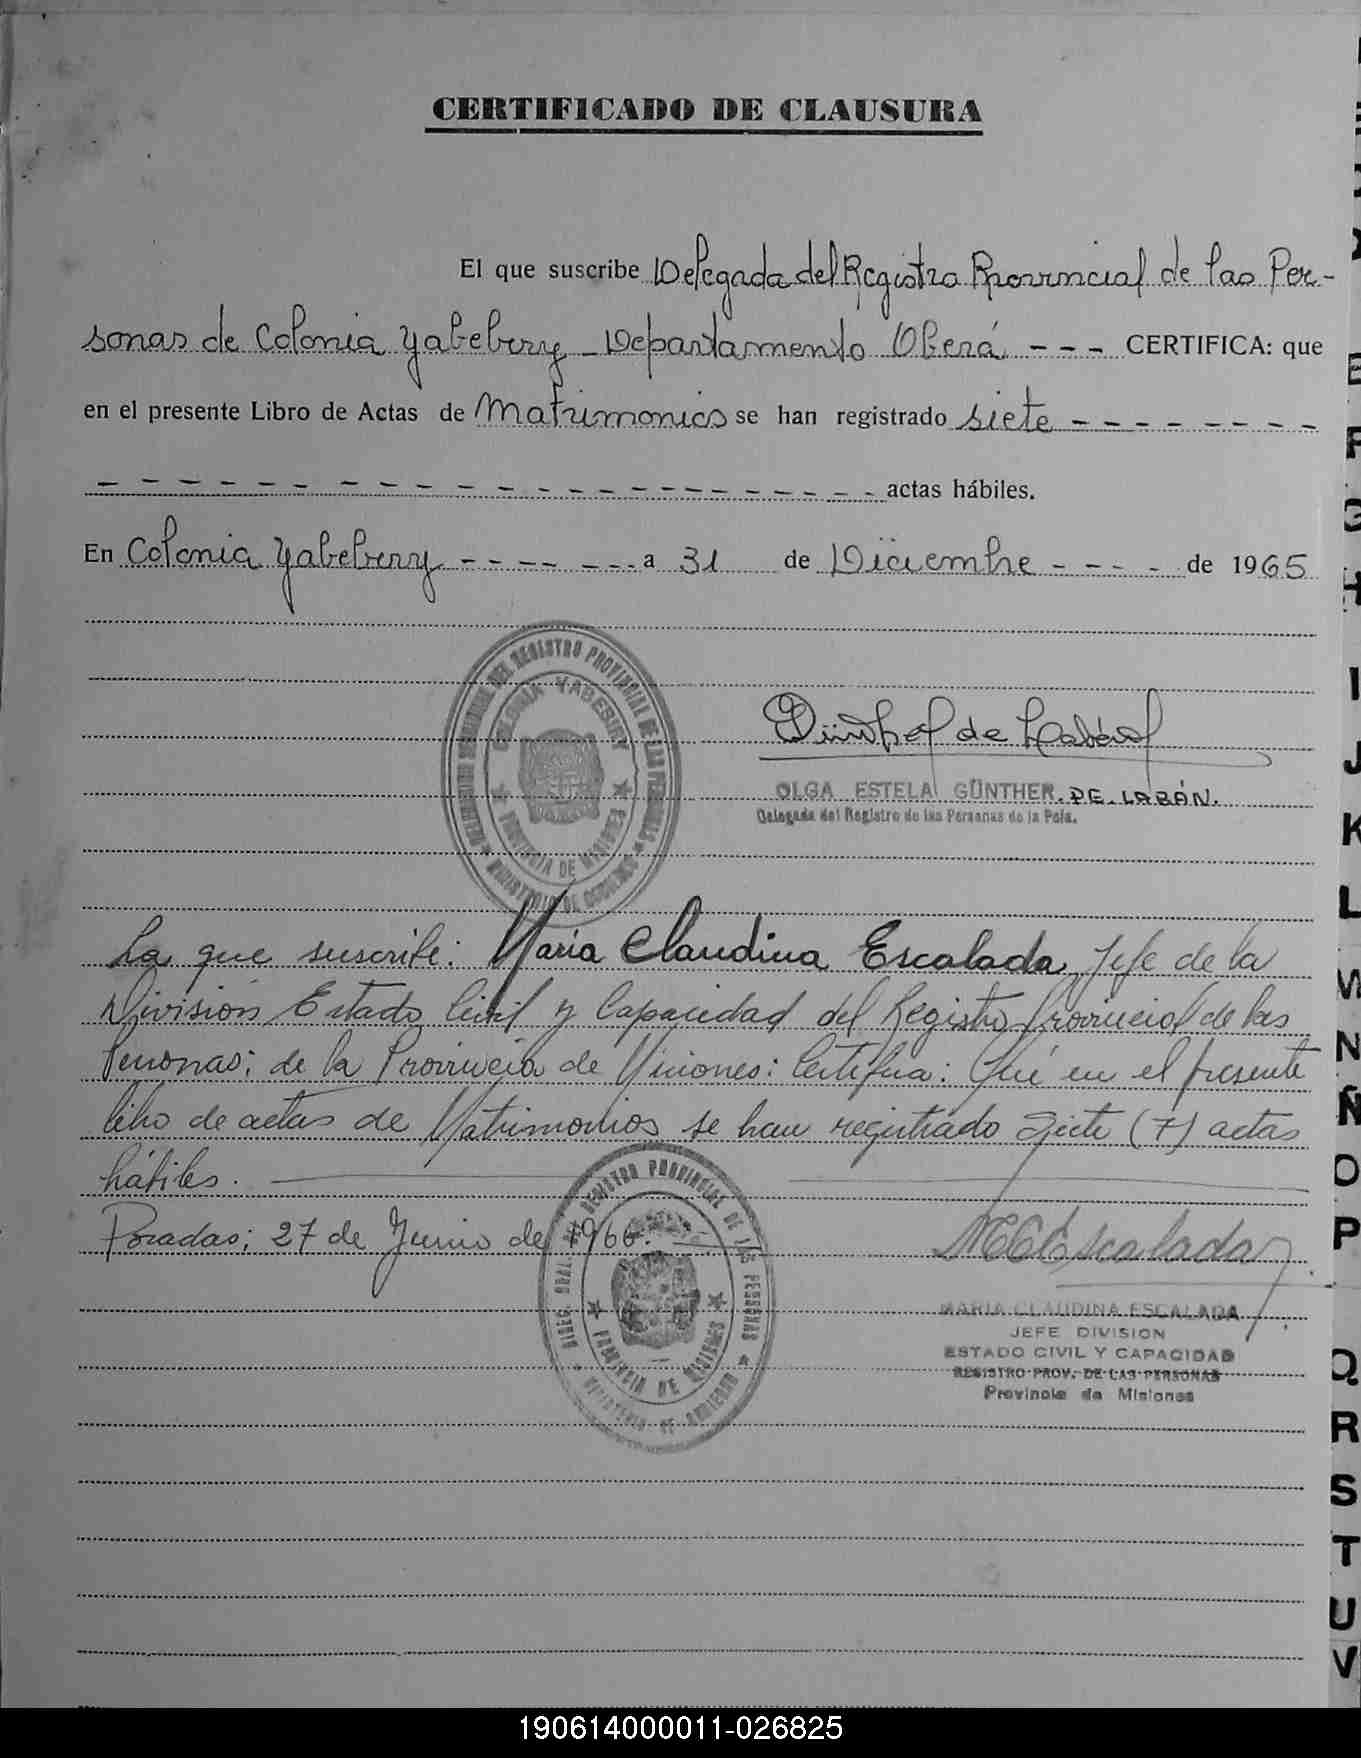 CERTIFICADO DE CLAUSURA
El que suscribe Delegada del Registro Provincial de las Per-
sonas de Colonia Yabebiry - Departamento Oberá - - - CERTIFICA: que
en el presente Libro de Actas de Matrimonios se han registrado siete - - - - - - - -
- - - - - - - - - - - - - - - - - - - - - - - - actas hábiles.
En Colonia Yabebiry - - - - - - - a 31 de Diciembre - - - - de 1965
REGISTRO PROVINCIAL DE LAS PERSONAS
COLONIA YABEBIRY
PROVINCIA DE MISIONES
MINISTERIO DE GOBIERNO
Günther de Labán
OLGA ESTELA GÜNTHER. DE. LABÁN.
Delegada del Registro de las Personas de la Pcia.
La que suscribe: Maria Claudina Escalada, Jefe de la
División Estado Civil y Capacidad del Registro Provincial de las
Personas; de la Provincia de Misiones: Certifica: Que en el presente
libro de actas de Matrimonios se han registrado siete (7) actas
hábiles.
Posadas; 27 de Junio de 1966.
DIREC. GRAL. REGISTRO PROVINCIAL DE LAS PERSONAS
PROVINCIA DE MISIONES
MINISTERIO DE GOBIERNO
MCEscalada
MARIA CLAUDINA ESCALADA
JEFE DIVISION
ESTADO CIVIL Y CAPACIDAD
REGISTRO PROV. DE LAS PERSONAS
Provincia de Misiones
E
F
G
H
I
J
K
L
M
N
Ñ
O
P
Q
R
S
T
U
V
190614000011-026825